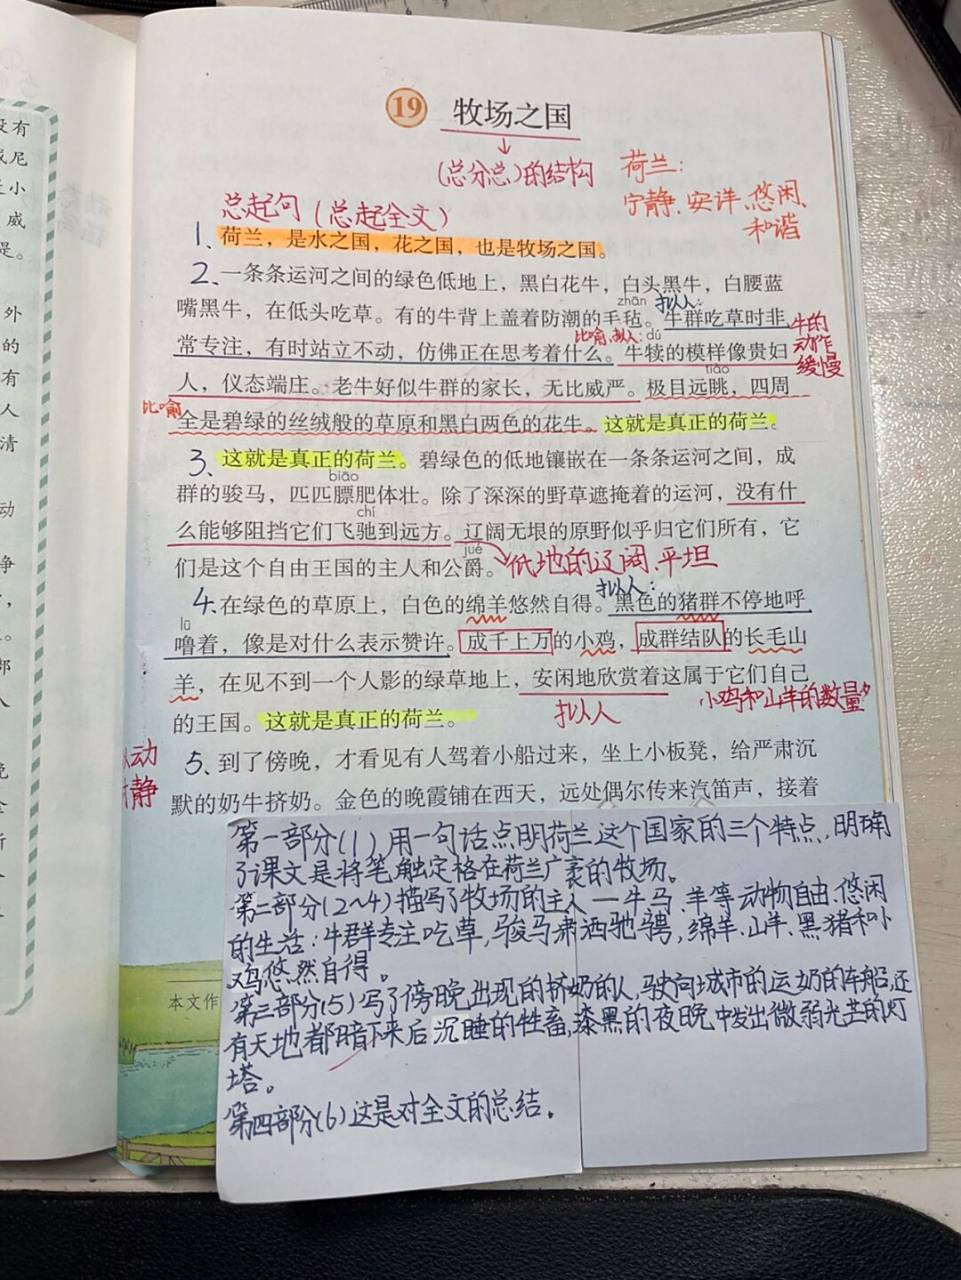 19 牧场之国
(总分总)的结构
荷兰:
宁静、安详、悠闲、
和谐
总起句(总起全文)
1、荷兰，是水之国，花之国，也是牧场之国。
2、一条条运河之间的绿色低地上，黑白花牛，白头黑牛，白腰蓝
嘴黑牛，在低头吃草。有的牛背上盖着防潮的毛毡。牛群吃草时非
zhān 拟人:
常专注，有时站立不动，仿佛正在思考着什么。牛犊的模样像贵妇
比喻、拟人: dú
牛的
动作
缓慢
人，仪态端庄。老牛好似牛群的家长，无比威严。极目远眺，四周
tiào
比喻
全是碧绿的丝绒般的草原和黑白两色的花牛。这就是真正的荷兰。
3、这就是真正的荷兰。碧绿色的低地镶嵌在一条条运河之间，成
biāo
群的骏马，匹匹膘肥体壮。除了深深的野草遮掩着的运河，没有什
chí
么能够阻挡它们飞驰到远方。辽阔无垠的原野似乎归它们所有，它
jué
们是这个自由王国的主人和公爵。
低地的辽阔、平坦
拟人:
4、在绿色的草原上，白色的绵羊悠然自得。黑色的猪群不停地呼
lū
噜着，像是对什么表示赞许。成千上万的小鸡，成群结队的长毛山
羊，在见不到一个人影的绿草地上，安闲地欣赏着这属于它们自己
的王国。这就是真正的荷兰。
拟人
小鸡和山羊的数量多
5、到了傍晚，才看见有人驾着小船过来，坐上小板凳，给严肃沉
动
静
默的奶牛挤奶。金色的晚霞铺在西天，远处偶尔传来汽笛声，接着
第一部分(1)用一句话点明荷兰这个国家的三个特点,明确
了课文是将笔触定格在荷兰广袤的牧场。
第二部分(2~4)描写了牧场的主人一牛、马、羊等动物自由、悠闲
的生活:牛群专注吃草,骏马肃洒驰骋,绵羊、山羊、黑猪和小
鸡悠然自得。
第三部分(5)写了傍晚出现的挤奶的人,驶向城市的运奶的车船,还
有天地都暗下来后沉睡的牲畜,漆黑的夜晚中发出微弱光芒的灯
塔。
第四部分(6)这是对全文的总结。
本文作
没有
小
威
是。
外
的
有
人
清
动
争